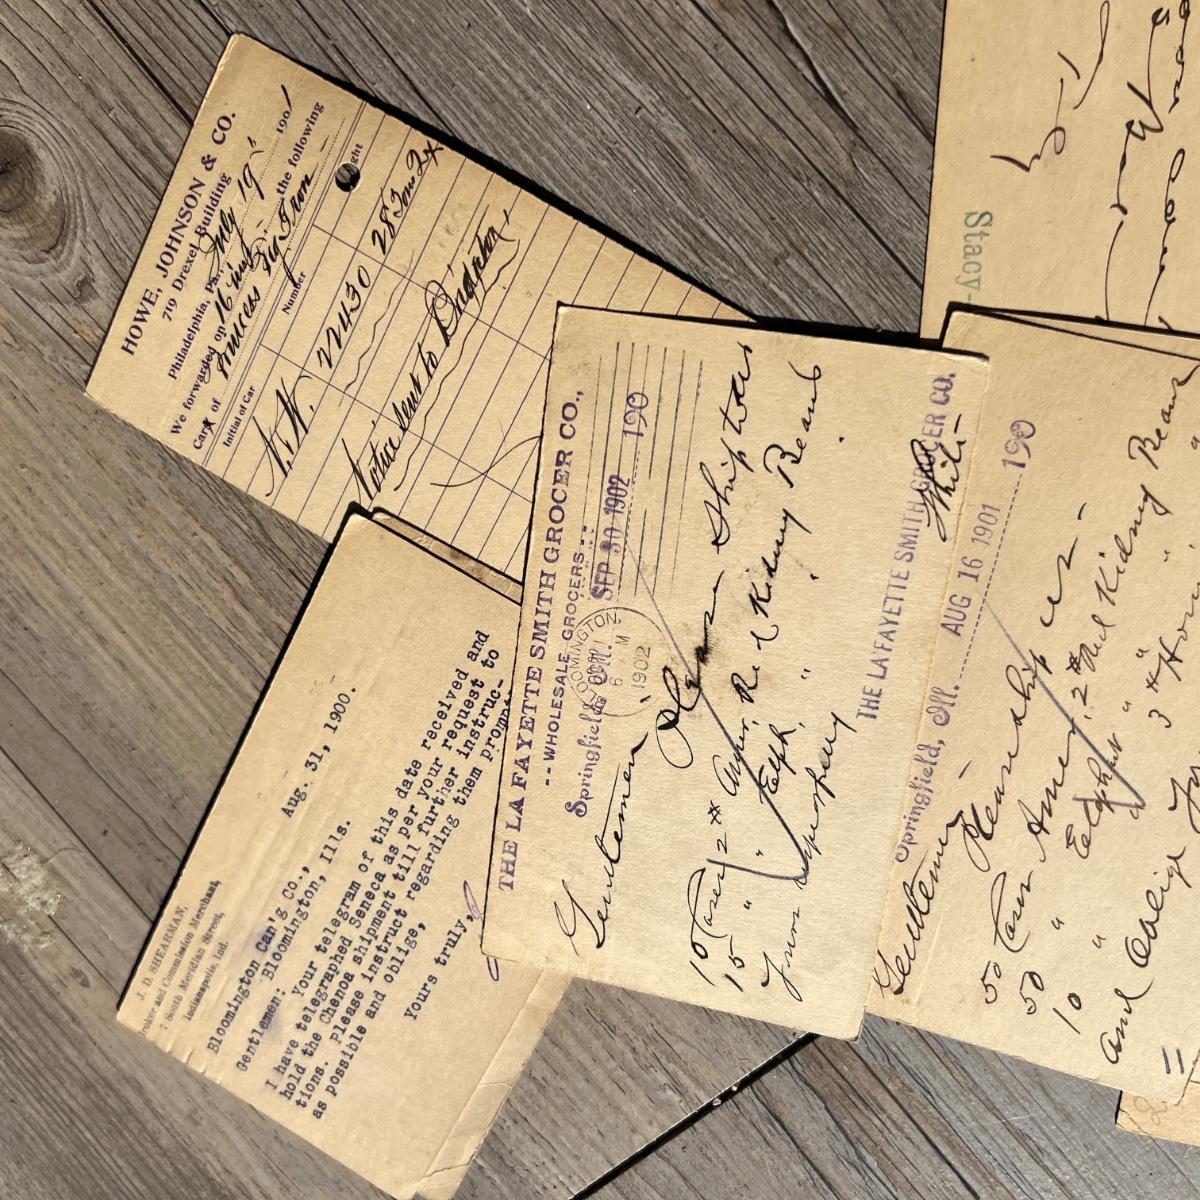 HOWE, JOHNSON & CO.
719 Drexel Building
Philadelphia, Pa., July 19" 1901
We forwarded on 16" inst. the following
Cars of Princess Pig Iron
Initial of Car Number ght
N.W. 22430 28 Tons 2x
Notice sent to
J. D. SHEARMAN,
roker and Commission Merchant,
7 South Meridian Street,
Indianapolis, Ind.
Aug. 31, 1900.
Bloomington Can'g Co.,
Bloomington, Ills.
Gentlemen:
I have Your telegram of this date received and
hold the telegraphed Seneca as per your request to
tions. Chenoa shipment till further instruc-
as possible Please instruct regarding them prompt
and oblige,
Yours truly,
THE LA FAYETTE SMITH GROCER CO.,
-- WHOLESALE GROCERS --
Springfield, Ill. SEP 30 1902 190
BLOOMINGTON
6 M
1902
Gentlemen
Please Ship two
10 Cases 2 # Amer. Red Kidney Beans
15 " " Elph. " "
Yours respectfully
THE LA FAYETTE SMITH GROCER CO.
Stacy-
Springfield, Ill. AUG 16 1901 190
Gentlemen
Please ship us -
50 Cases Amer. 2 # Red Kidney Beans
50 " Elephant " " "
10 " " 3 # Homi
and oblige